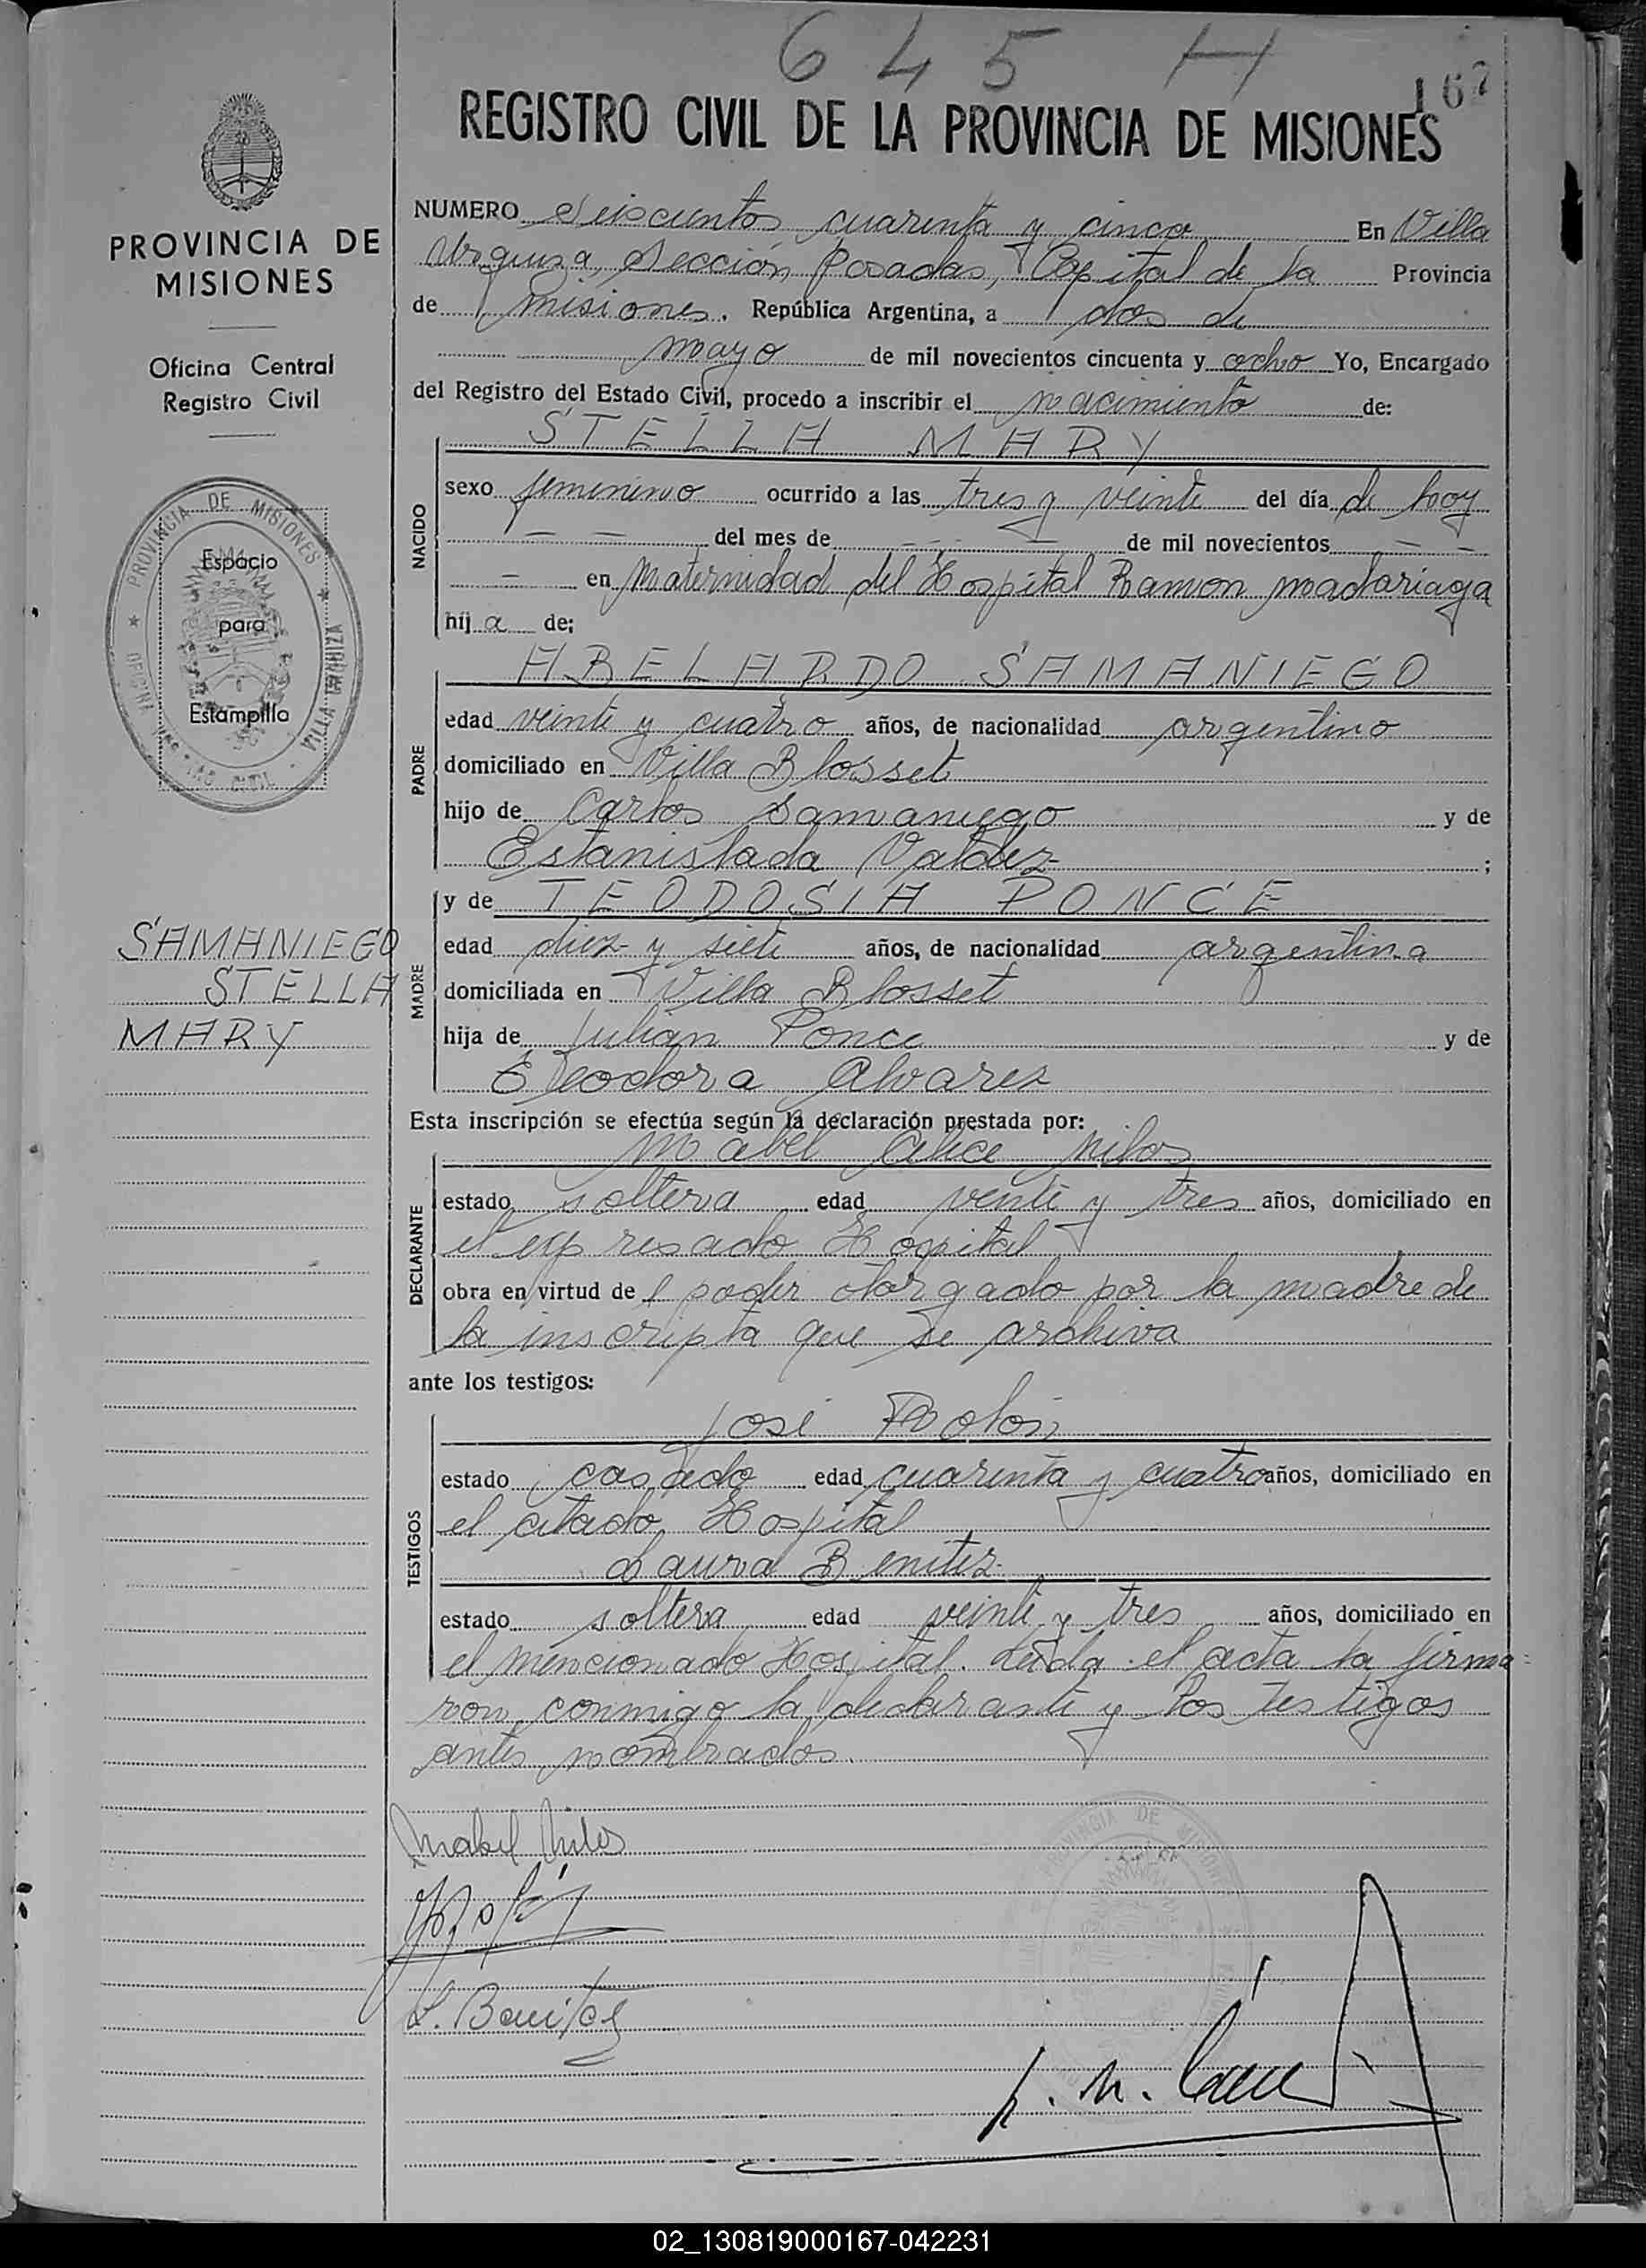 645 H
167
REGISTRO CIVIL DE LA PROVINCIA DE MISIONES
PROVINCIA DE
MISIONES
Oficina Central
Registro Civil
PROVINCIA DE MISIONES * VILLA URQUIZA
Espacio
para
Estampilla
SAMANIEGO
STELLA
MARY
NUMERO Seiscientos cuarenta y cinco En Villa
Urquiza, Sección Posadas, Capital de la Provincia
de misiones. República Argentina, a dos de
mayo de mil novecientos cincuenta y ocho Yo, Encargado
del Registro del Estado Civil, procedo a inscribir el nacimiento de:
STELLA MARY
NACIDO
sexo femenino ocurrido a las tres y veinte del día de hoy
— — del mes de — — de mil novecientos — —
— en Maternidad del Hospital Ramon madariaga
hij a de:
ABELARDO SAMANIEGO
PADRE
edad veinte y cuatro años, de nacionalidad argentino
domiciliado en Villa Blosset
hijo de Carlos Samaniego y de
Estanislada Valdez ;
y de TEODOSIA PONCE
MADRE
edad diez y siete años, de nacionalidad argentina
domiciliada en Villa Blosset
hija de Julian Ponce y de
Eleodora Alvarez
Esta inscripción se efectúa según la declaración prestada por:
Mabel Alice
DECLARANTE
estado soltera edad veinte y tres años, domiciliado en
el expresado Hospital
obra en virtud de l poder otorgado por la madre de
la inscripta que se archiva
ante los testigos:
José Rolón
TESTIGOS
estado casado edad cuarenta y cuatro años, domiciliado en
el citado Hospital
Laura Benitez
estado soltera edad veinte y tres años, domiciliado en
el mencionado Hospital. Leida el acta la firma=
ron conmigo la declarante y los testigos
antes nombrados.
Mabel
L. Benitez
02_130819000167-042231